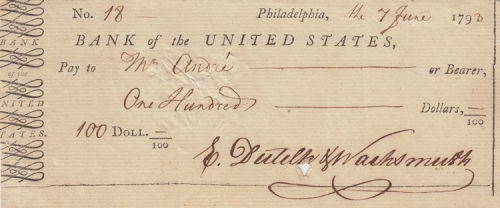 No. 18 — Philadelphia, the 7 June 1793
BANK of the UNITED STATES,
Pay to Mr. André — or Bearer,
One Hundred — Dollars, —/100
100 DOLL. —/100
E. Dutilh & Wachsmuth
BANK
of the
UNITED
STATES.